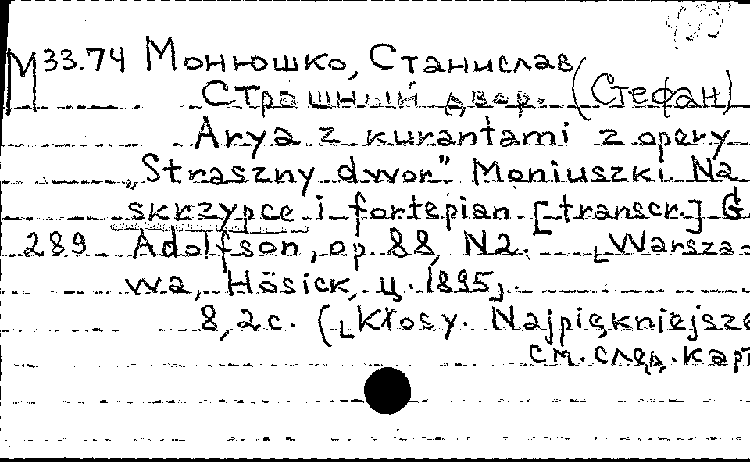 М33.74 Монюшко, Станислав
Страшный двор. (Стефан)
Arya z kurantami z opery
„Straszny dwor" Moniuszki. Na
skrzypce i fortepian [transcr.] G.
289 Adolfson, op. 88, N2. [Warsza-
wa, Hösick, ц. 1895].
8,2 с. ([Kłosy. Najpiękniejsze
см. след. карт